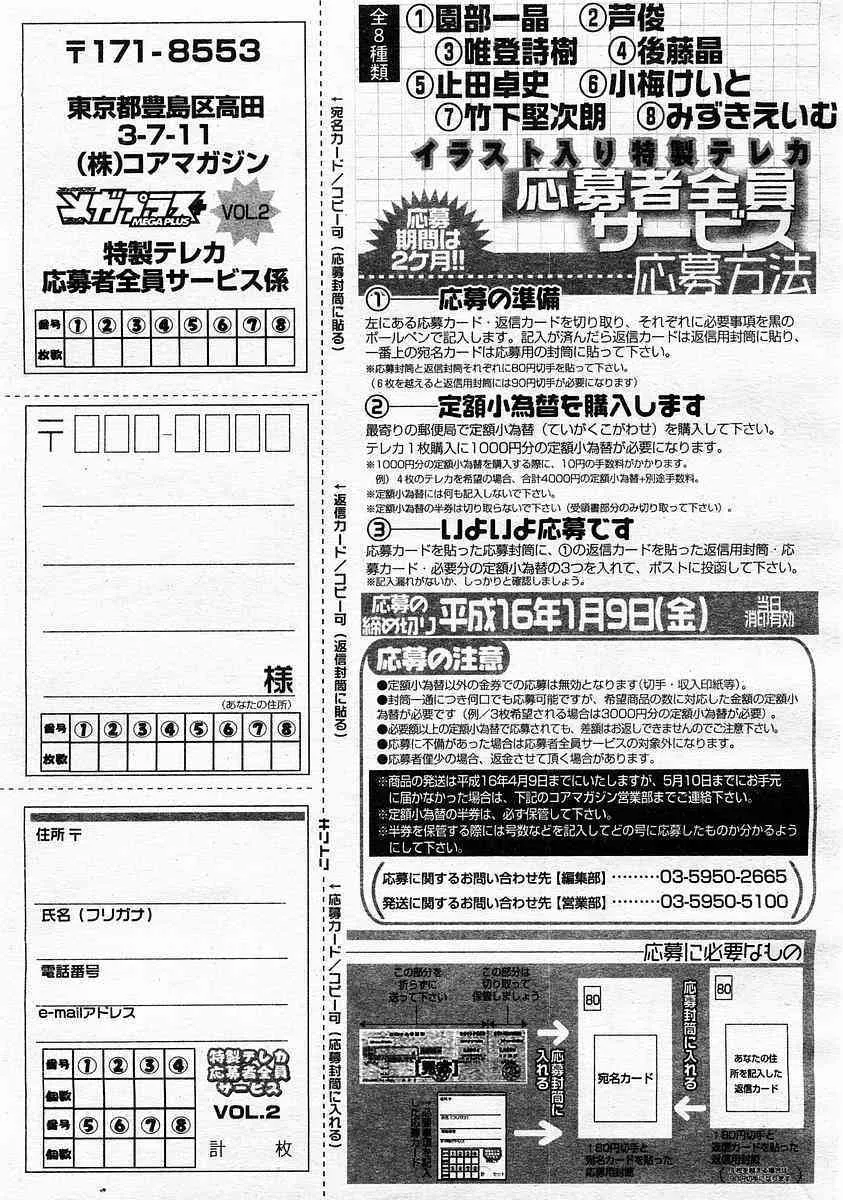 〒171-8553
東京都豊島区高田
3-7-11
(株)コアマガジン
メガプラス
MEGAPLUS
VOL.2
特製テレカ
応募者全員サービス係
番号 ① ② ③ ④ ⑤ ⑥ ⑦ ⑧
枚数
←宛名カード/コピー可(応募封筒に貼る)
〒
様
(あなたの住所)
番号 ① ② ③ ④ ⑤ ⑥ ⑦ ⑧
枚数
←返信カード/コピー可(返信封筒に貼る)
キリトリ
住所 〒
氏名(フリガナ)
電話番号
e-mailアドレス
番号 ① ② ③ ④
個数
番号 ⑤ ⑥ ⑦ ⑧
個数
特製テレカ
応募者全員
サービス
VOL.2
計 枚
←応募カード/コピー可(応募封筒に入れる)
全8種類
①園部一晶 ②芦俊
③唯登詩樹 ④後藤晶
⑤止田卓史 ⑥小梅けいと
⑦竹下堅次朗 ⑧みずきえいむ
イラスト入り特製テレカ
応募者全員
サービス
応募
期間は
2ケ月!!
応募方法
①──応募の準備
左にある応募カード・返信カードを切り取り、それぞれに必要事項を黒の
ボールペンで記入します。記入が済んだら返信カードは返信用封筒に貼り、
一番上の宛名カードは応募用の封筒に貼って下さい。
※応募封筒と返信封筒それぞれに80円切手を貼って下さい。
(6枚を越えると返信用封筒には90円切手が必要になります)
②──定額小為替を購入します
最寄りの郵便局で定額小為替(ていがくこがわせ)を購入して下さい。
テレカ1枚購入に1000円分の定額小為替が必要になります。
※1000円分の定額小為替を購入する際に、10円の手数料がかかります。
例)4枚のテレカを希望の場合、合計4000円の定額小為替+別途手数料。
※定額小為替には何も記入しないで下さい。
※定額小為替の半券は切り取らないで下さい(受領書部分のみ切り取って下さい)。
③──いよいよ応募です
応募カードを貼った応募封筒に、①の返信カードを貼った返信用封筒・応
募カード・必要分の定額小為替の3つを入れて、ポストに投函して下さい。
※記入漏れがないか、しっかりと確認しましょう。
応募の
締め切り
平成16年1月9日(金)
当日
消印有効
応募の注意
●定額小為替以外の金券での応募は無効となります(切手・収入印紙等)。
●封筒一通につき何口でも応募可能ですが、希望商品の数に対応した金額の定額小
為替が必要です(例/3枚希望される場合は3000円分の定額小為替が必要)。
●必要額以上の定額小為替で応募されても、差額はお返しできませんのでご注意下さい。
●応募に不備があった場合は応募者全員サービスの対象外になります。
●応募者僅少の場合、返金させて頂く場合があります。
※商品の発送は平成16年4月9日までにいたしますが、5月10日までにお手元
に届かなかった場合は、下記のコアマガジン営業部までご連絡下さい。
※定額小為替の半券は、必ず保管して下さい。
※半券を保管する際には号数などを記入してどの号に応募したものか分かるよう
にして下さい。
応募に関するお問い合わせ先【編集部】………03-5950-2665
発送に関するお問い合わせ先【営業部】………03-5950-5100
応募に必要なもの
この部分を
折らずに
送って下さい
この部分は
切り取って
保管しましょう
【見本】
応募封筒に
入れる
必要事項を記入
した応募カード
80
宛名カード
180円切手と
宛名カードを貼った
応募用封筒
応募封筒に入れる
80
あなたの住
所を記入した
返信カード
180円切手と
返信カードを貼った
返信用封筒